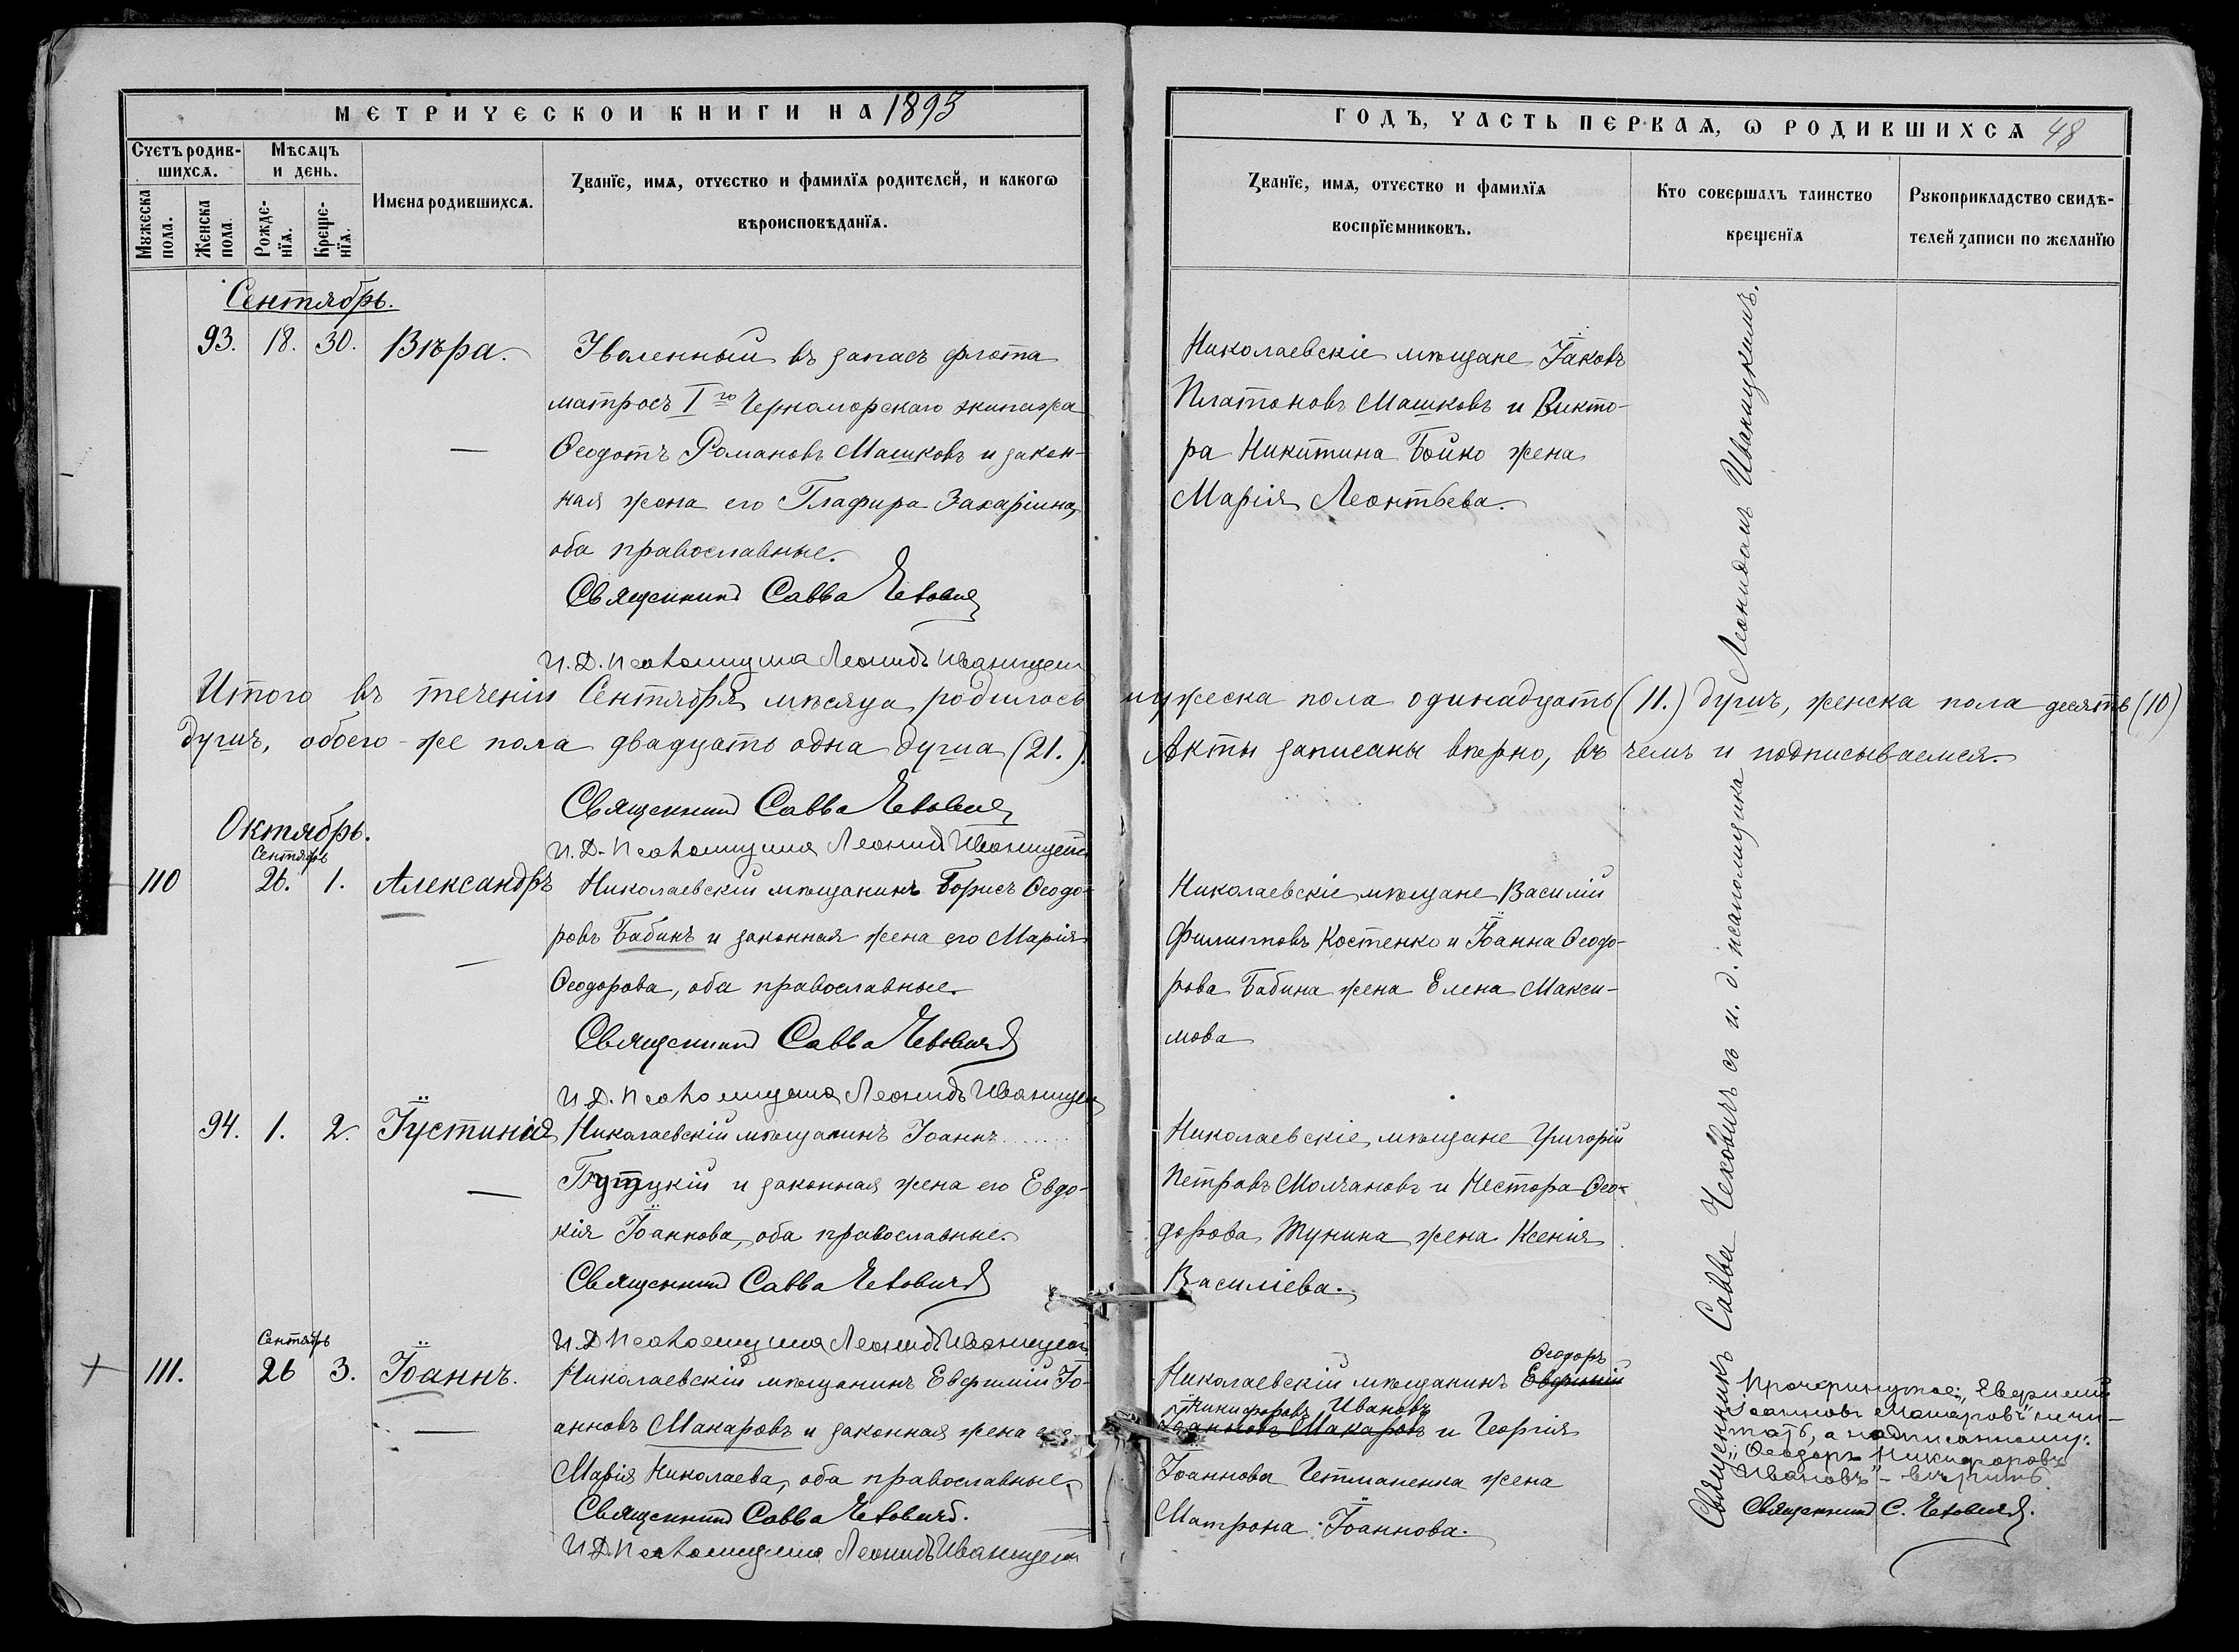 МЕТРИЧЕСКОЙ КНИГИ НА 1893
Счетъ родив-
шихся.
Мѣсяцъ
и день.
Мужеска
пола.
Женска
пола.
Рожде-
нїя.
Креще-
нїя.
Имена родившихся.
Званїе, имя, отчество и фамилїя родителей, и какогѡ
вѣроисповѣданїя.
Сентябрь.
93. 18. 30. Вѣра.
Уволенный въ запасъ флота
матросъ I го Черноморскаго экипажа
Ѳеодотъ Романовъ Машковъ и закон-
ная жена его Глафира Захаріина,
оба православные.
Священникъ Савва Чеховичъ
И.Д. Псаломщика Леонидъ Иваницкій
Итого въ теченіи Сентября мѣсяца родилось
душъ, обоего-же пола двадцать одна душа (21.).
Священникъ Савва Чеховичъ
И.Д. Псаломщика Леонидъ Иваницкій
Октябрь.
Сентябрь
110 26. 1. Александръ
Николаевскій мѣщанинъ Борисъ Ѳеодо-
ровъ Бабинъ и законная жена его Марія
Ѳеодорова, оба православные.
Священникъ Савва Чеховичъ
И.Д. Псаломщика Леонидъ Иваницкій
94. 1. 2. Іустинія
Николаевскій мѣщанинъ Іоаннъ ........
и законная жена его Евдо-
кія Іоаннова, оба православные.
Священникъ Савва Чеховичъ
И.Д. Псаломщика Леонидъ Иваницкій
Сентябрь
111. 26 3. Іоаннъ.
Николаевскій мѣщанинъ Евфимій Іо-
анновъ Макаровъ и законная жена его
Марія Николаева, оба православные.
Священникъ Савва Чеховичъ.
И.Д. Псаломщика Леонидъ Иваницкій
ГОДЪ, ЧАСТЬ ПЕРВАЯ, Ѡ РОДИВШИХСЯ 48
Званїе, имя, отчество и фамилїя
воспрїемниковъ.
Кто совершалъ таинство
крещенїя
Рукоприкладство свидѣ-
телей записи по желанїю
Николаевскіе мѣщане Іаковъ
Платоновъ Машковъ и Викто-
ра Никитина Бойко жена
Марія Леонтьева.
мужеска пола одинадцать (11.) душъ, женска пола десять (10)
Акты записаны вѣрно, въ чемъ и подписываемся.
Николаевскіе мѣщане Василій
Филипповъ Костенко и Іоанна Ѳеодо-
рова Бабина жена Елена Макси-
мова
Николаевскіе мѣщане Григорій
Петровъ Молчановъ и Нестора Ѳео-
дорова Жунина жена Ксенія
Василіева.
Ѳеодоръ
Николаевскій мѣщанинъ Евфимій
Никифоровъ Ивановъ
Іоанновъ Макаровъ и Георгія
Іоаннова Гетманенка жена
Матрона Іоаннова.
Священникъ Савва Чеховичъ съ и. д. псаломщика Леонидомъ Иваницкимъ.
Прочеркнутое: „Евфимій
Іоанновъ Макаровъ" не чи-
тать, а надписанному:
„Ѳеодоръ Никифоровъ
Ивановъ" - вѣрить.
Священникъ С. Чеховичъ.